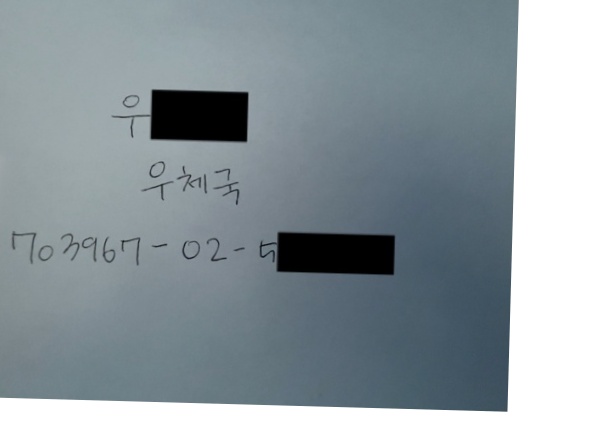 우
우체국
703967-02-5